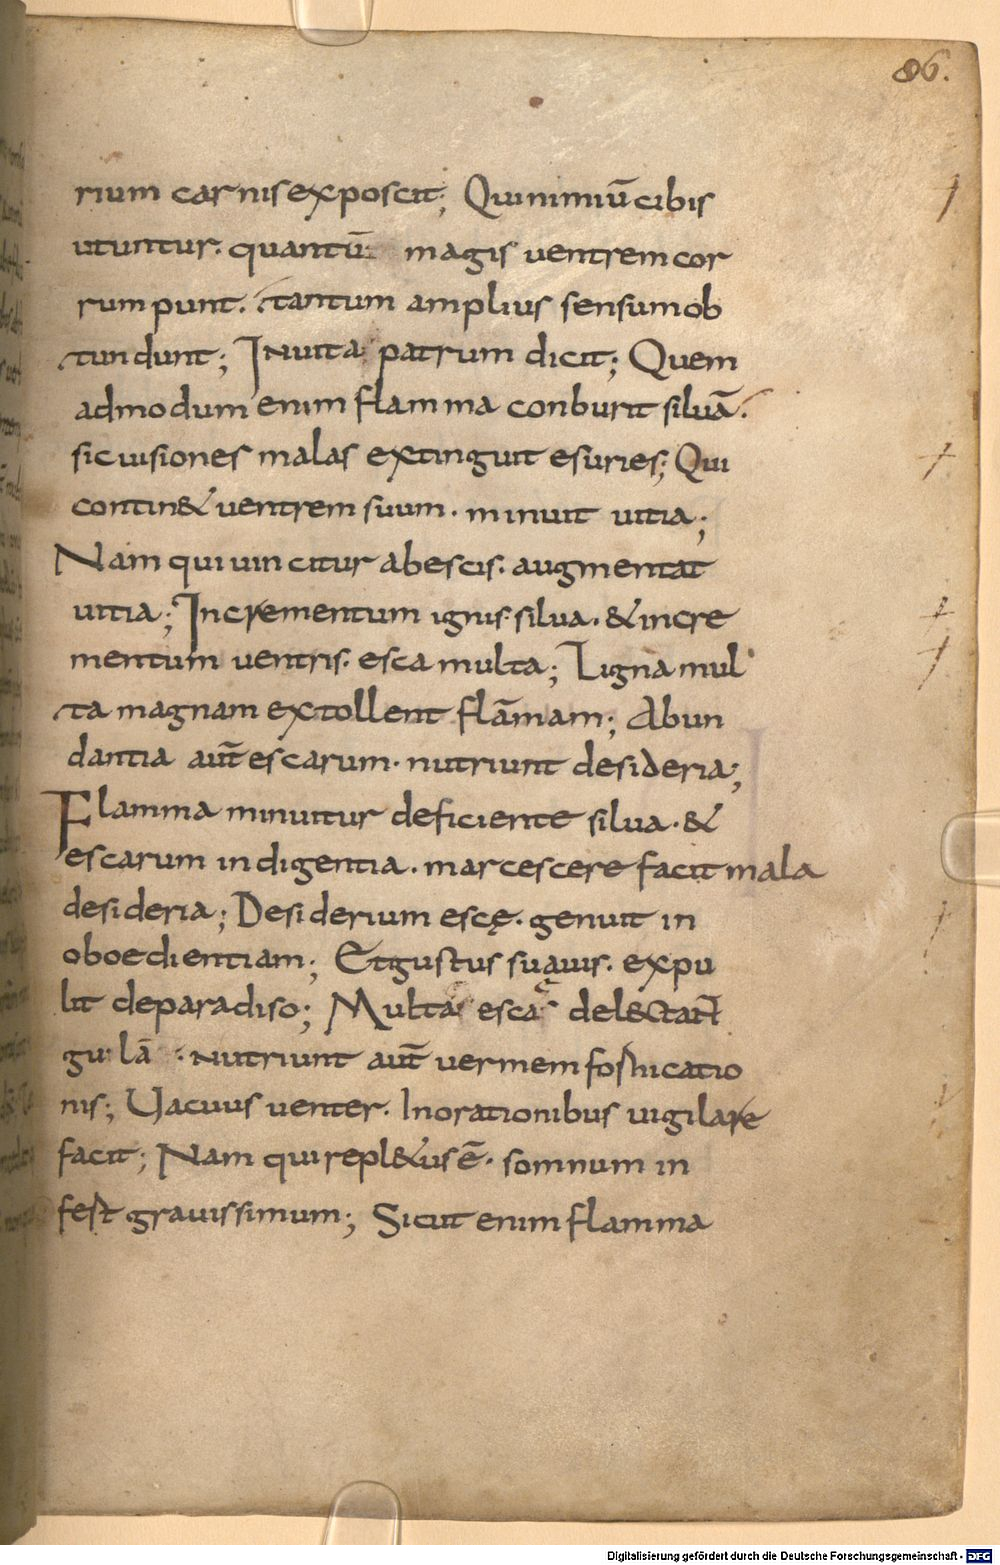 86.
rium carnis exposcit; Qui nimiū cibis
utuntur. quantū magis ventrem cor
rumpunt. tantum amplius sensum ob
tundunt; In uita patrum dicit; Quem
admodum enim flamma conburit siluā.
sic uisiones malas extinguit esuries; Qui
contin& uentrem suum. minuit uitia;
Nam qui uincitur ab escis. augmentat
uitia; Incrementum ignis silua. & incre
mentum uentris. esca multa; Ligna mul
ta magnam extollent flāmam; Abun
dantia aut̄ escarum. nutriunt desideria;
Flamma minuitur deficiente silua. &
escarum indigentia. marcescere facit mala
desideria; Desiderium escę. genuit in
oboedientiam; Et gustus suąuis. expu
lit de paradiso; Multa esca del&tant
gulā. nutriunt aut̄ uermem fornicatio
nis; Uacuus uenter. In orationibus uigilare
facit; Nam qui repl&us ē. somnum in
fert grauissimum; Sicut enim flamma
Digitalisierung gefördert durch die Deutsche Forschungsgemeinschaft - DFG